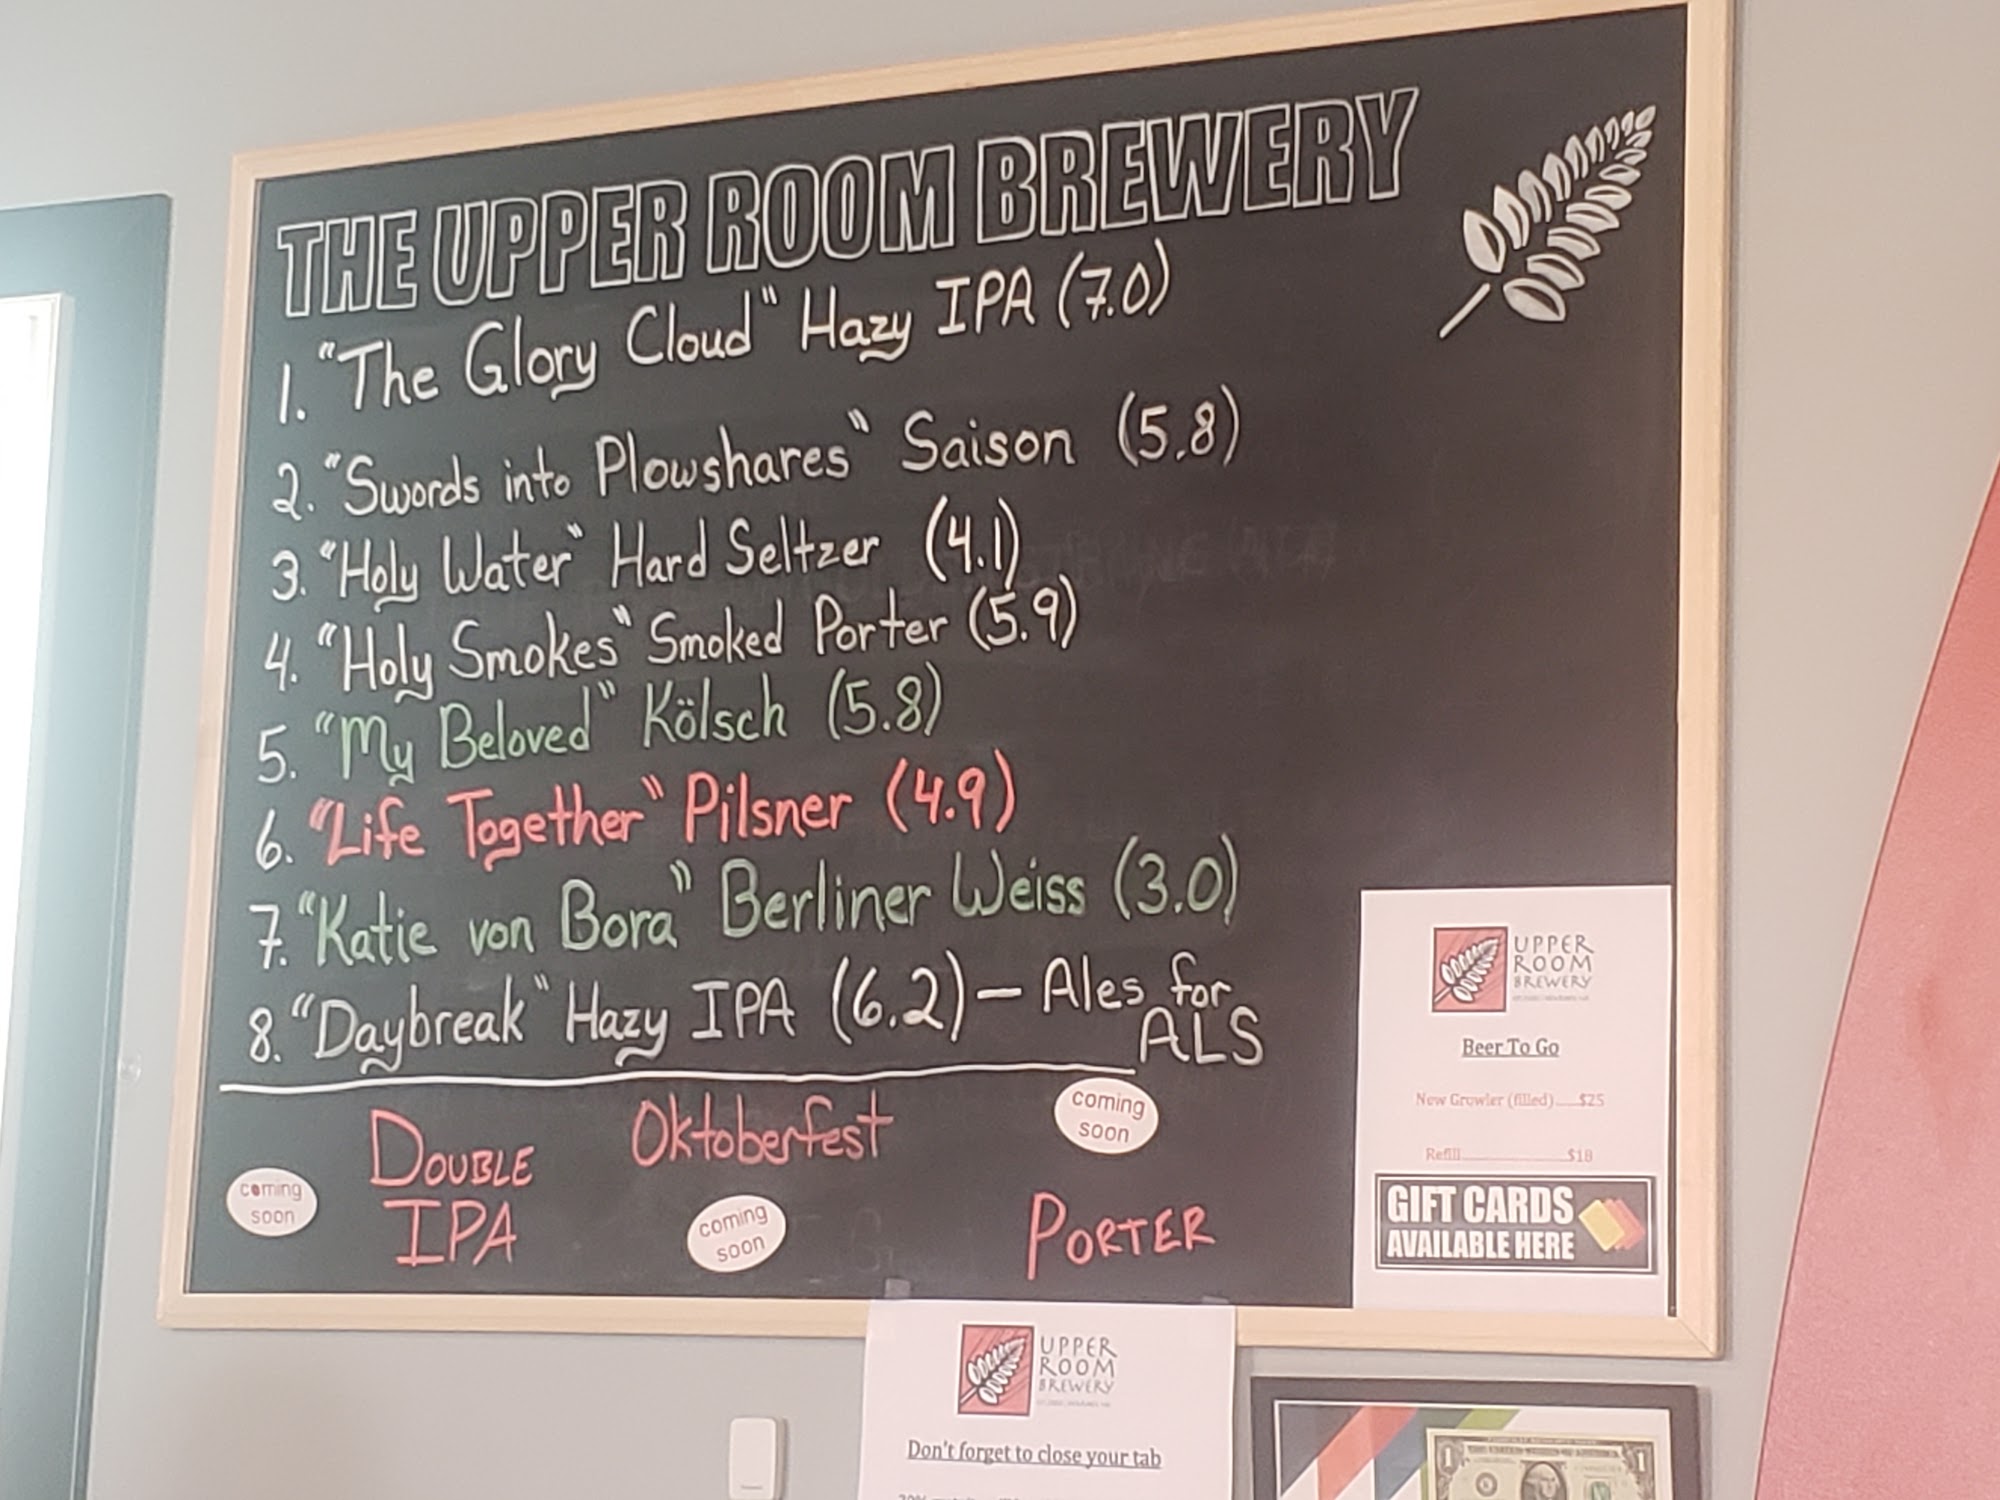 THE UPPER ROOM BREWERY
1. "The Glory Cloud" Hazy IPA (7.0)
2. "Swords into Plowshares" Saison (5.8)
3. "Holy Water" Hard Seltzer (4.1)
4. "Holy Smokes" Smoked Porter (5.9)
5. "My Beloved" Kölsch (5.8)
6. "Life Together" Pilsner (4.9)
7. "Katie von Bora" Berliner Weiss (3.0)
8. "Daybreak" Hazy IPA (6.2) — Ales for
ALS
coming
soon
DOUBLE
IPA
Oktoberfest
coming
soon
coming
soon
PORTER
UPPER
ROOM
BREWERY
Beer To Go
New Growler (filled).....$25
Refill....................$18
GIFT CARDS
AVAILABLE HERE
UPPER
ROOM
BREWERY
Don't forget to close your tab
1
1